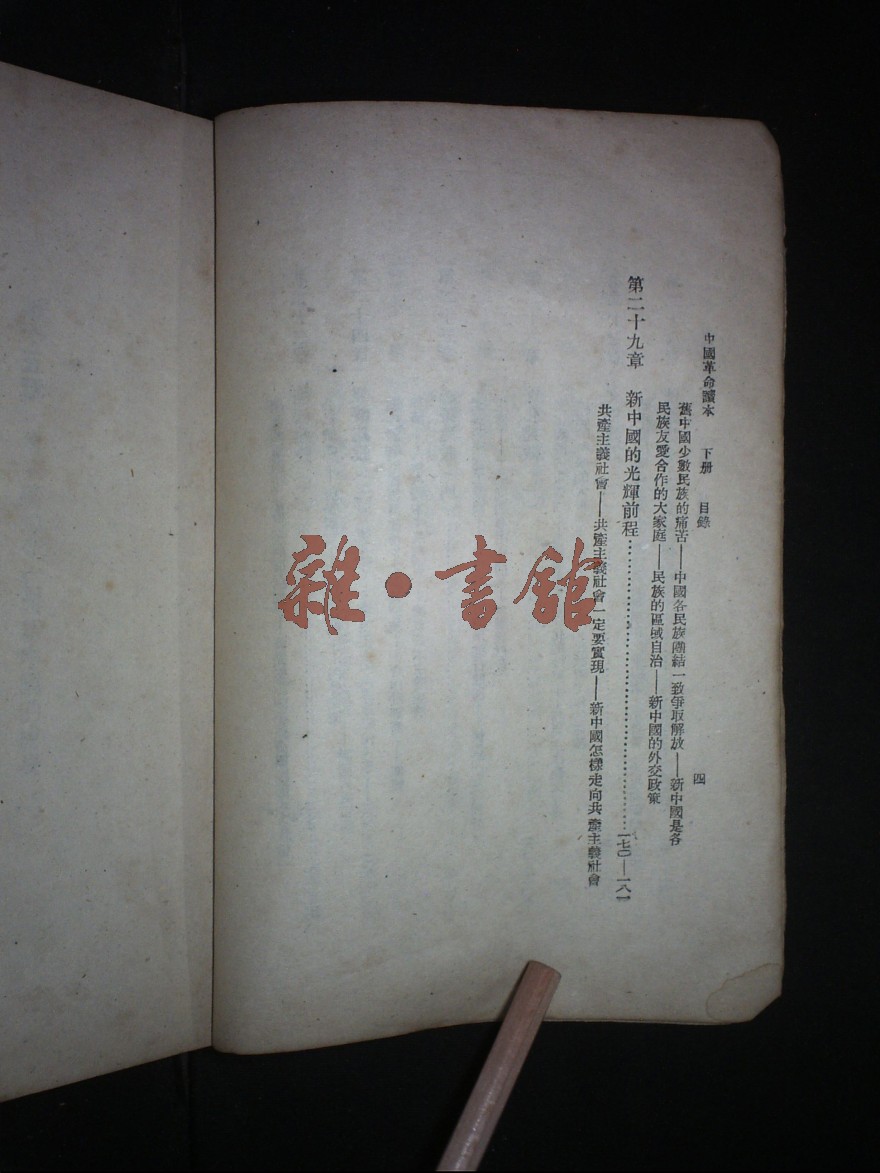 中國革命讀本　下册　目錄　四
舊中國少數民族的痛苦——中國各民族團結一致爭取解放——新中國是各
民族友愛合作的大家庭——民族的區域自治——新中國的外交政策
第二十九章　新中國的光輝前程…………………………一七〇—一八一
共產主義社會——共產主義社會一定要實現——新中國怎樣走向共產主義社會
雜·書館